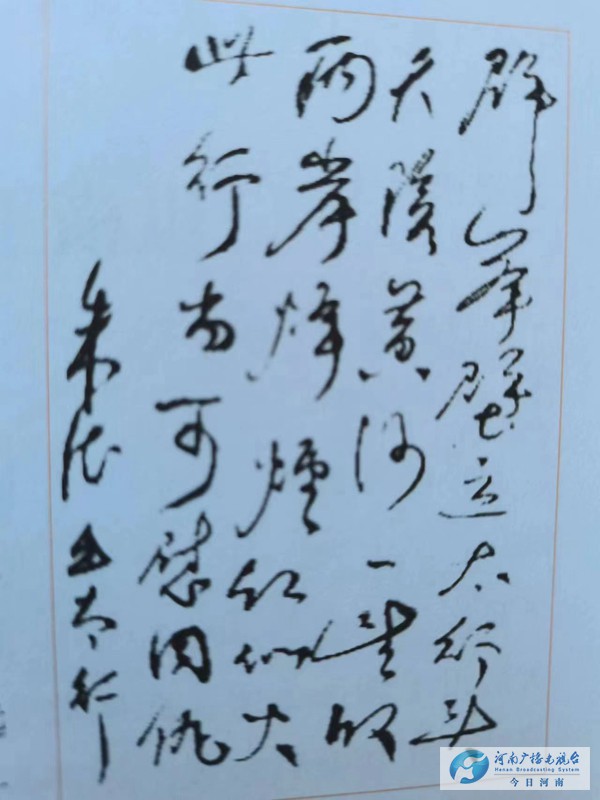 群峯壁立太行头
天险黄河一望收
两岸烽煙红似火
此行当可慰同仇
朱德 出太行
河南广播电视台
Henan Broadcasting System
今日河南